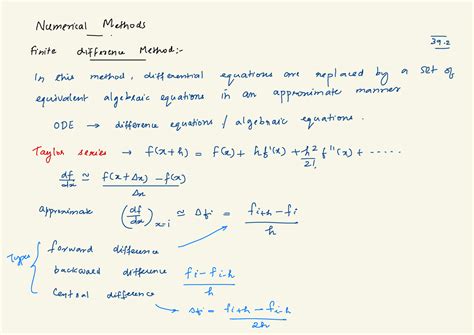 Numerical Methods
39.2
Finite difference Method:-
In this method, differential equations are replaced by a set of
equivalent algebraic equations in an approximate manner
ODE → difference equations / algebraic equations.
Taylor series → f(x+h) = f(x) + hf'(x) + h²/2! f''(x) + .....
df/dx ≃ f(x+Δx) - f(x) / Δx
approximate (df/dx)x=i ≃ Δfi = fi+h - fi / h
Types
forward difference
backward difference fi - fi-h / h
Central difference
→ Δfi = fi+h - fi-h / 2h